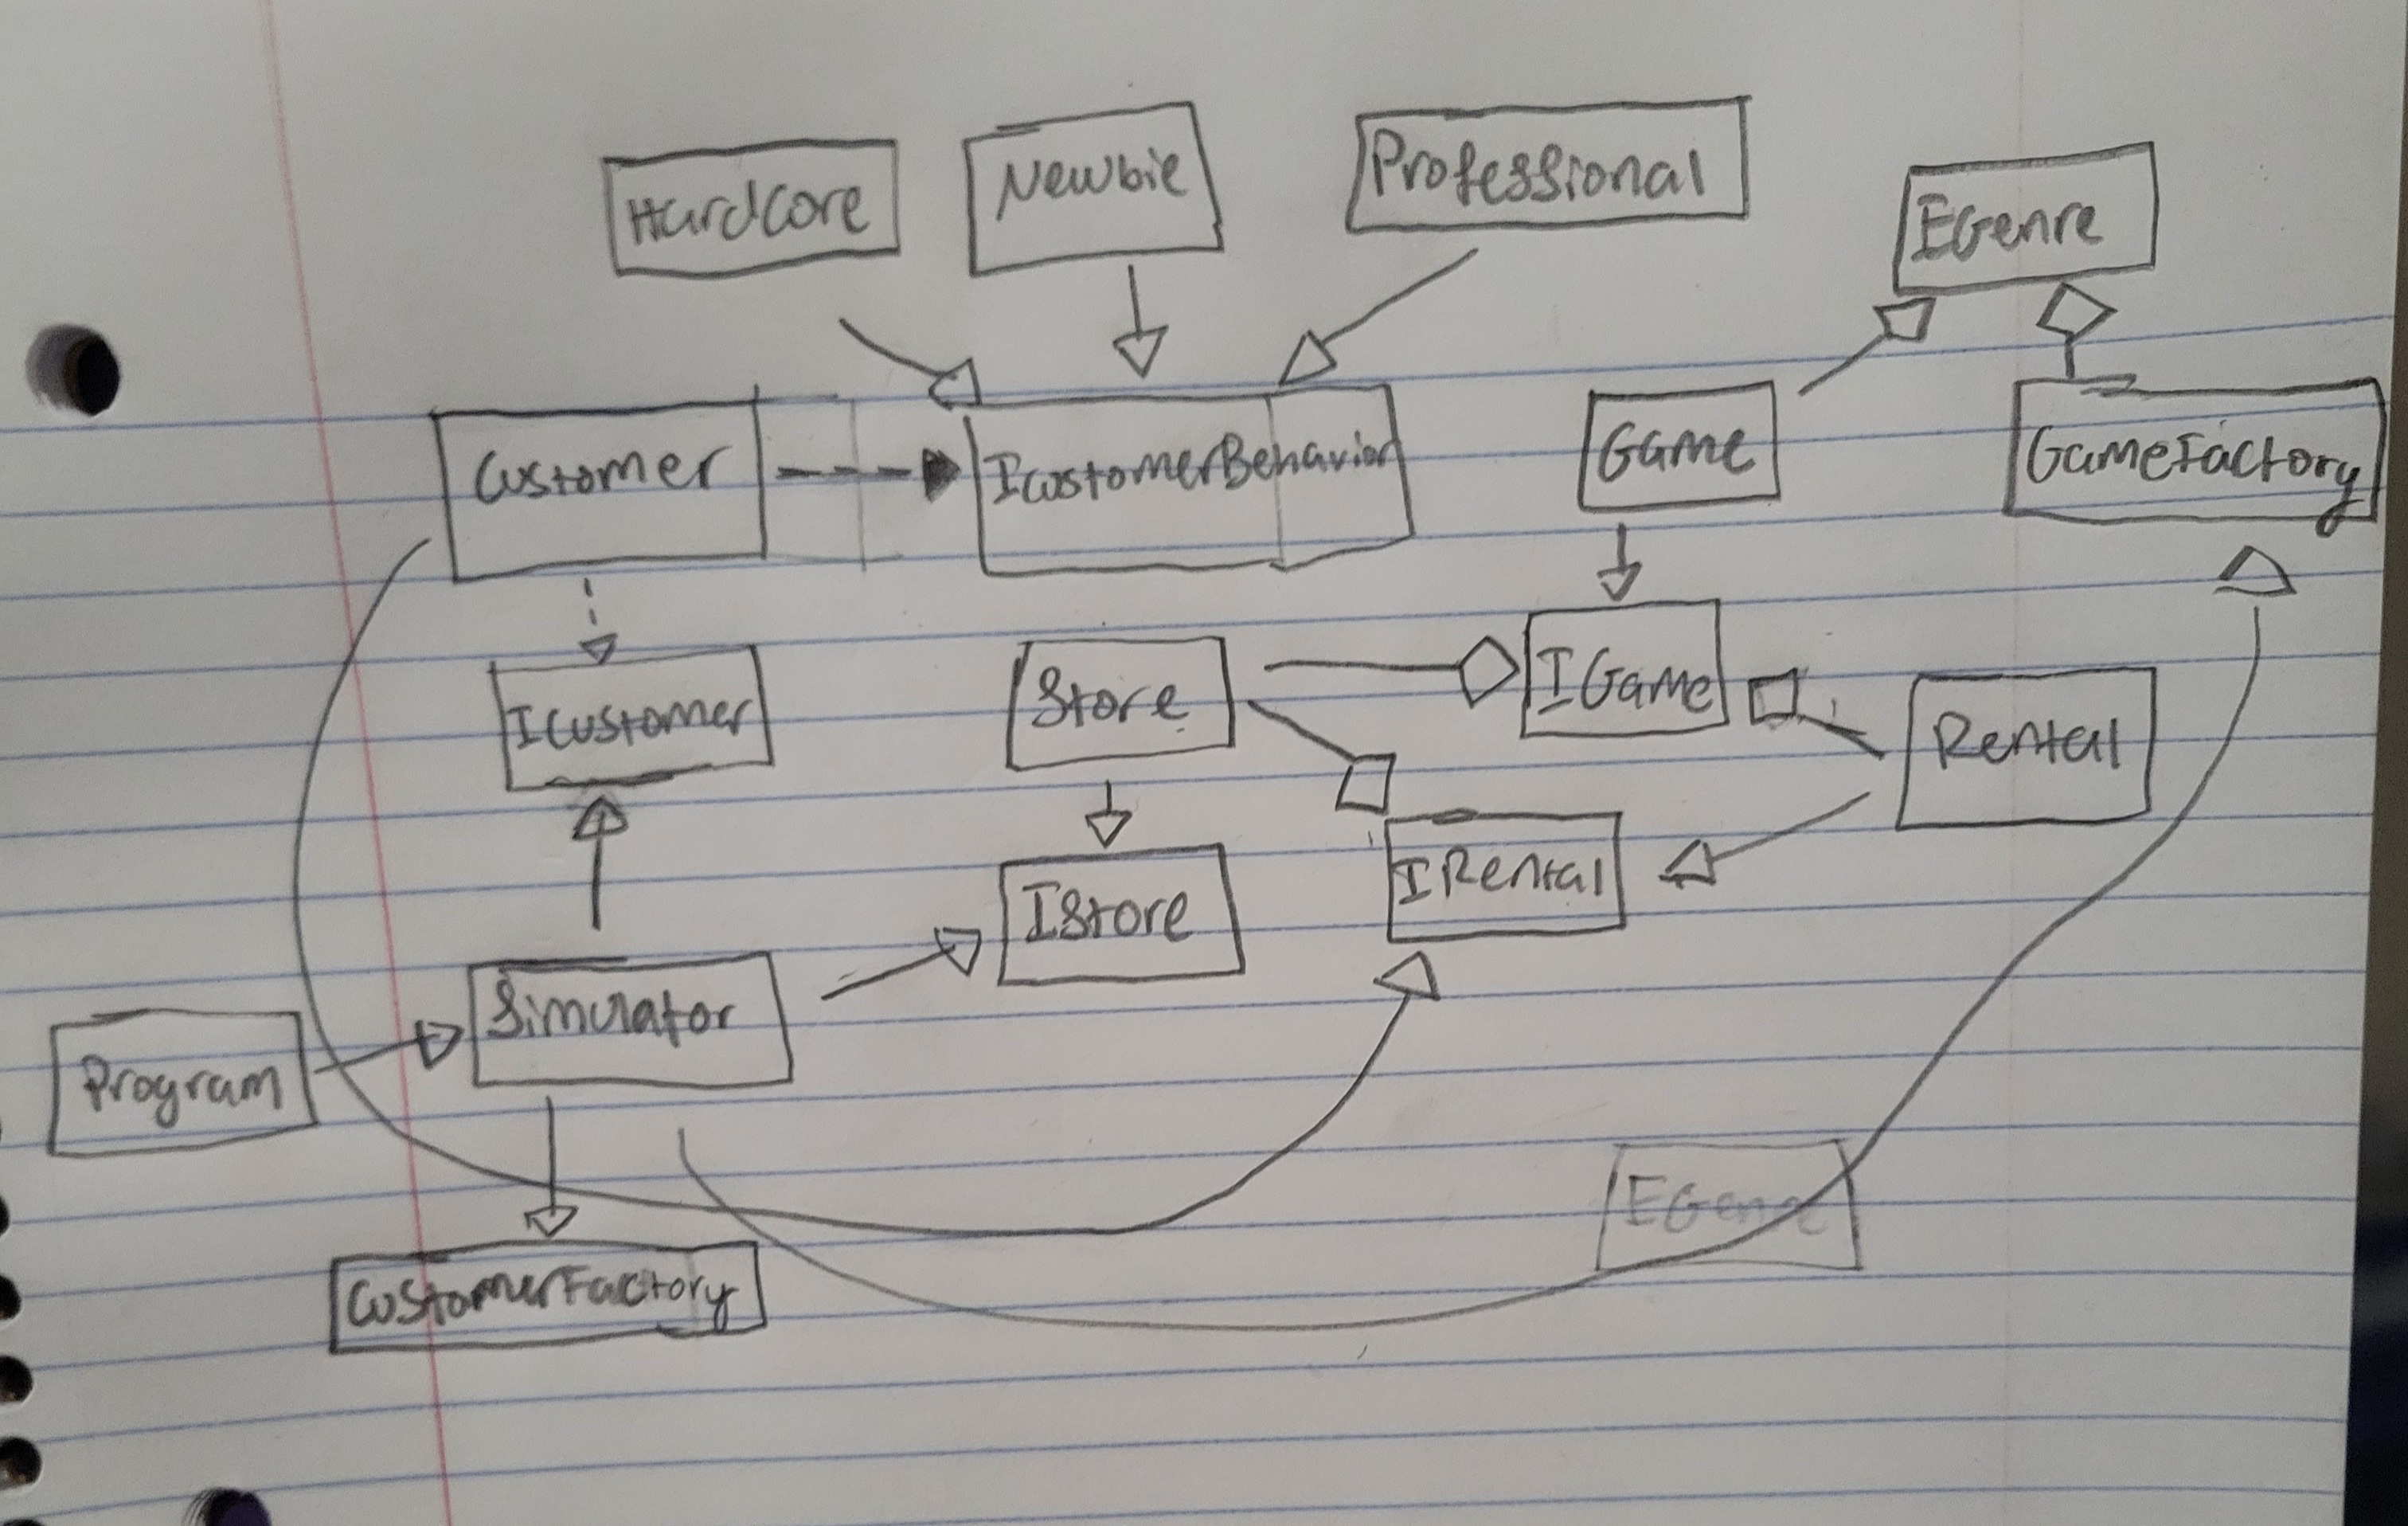 HardCore
Newbie
Professional
EGenre
Customer
ICustomerBehavior
Game
GameFactory
ICustomer
Store
IGame
Rental
IStore
IRental
Program
Simulator
EGenre
CustomerFactory